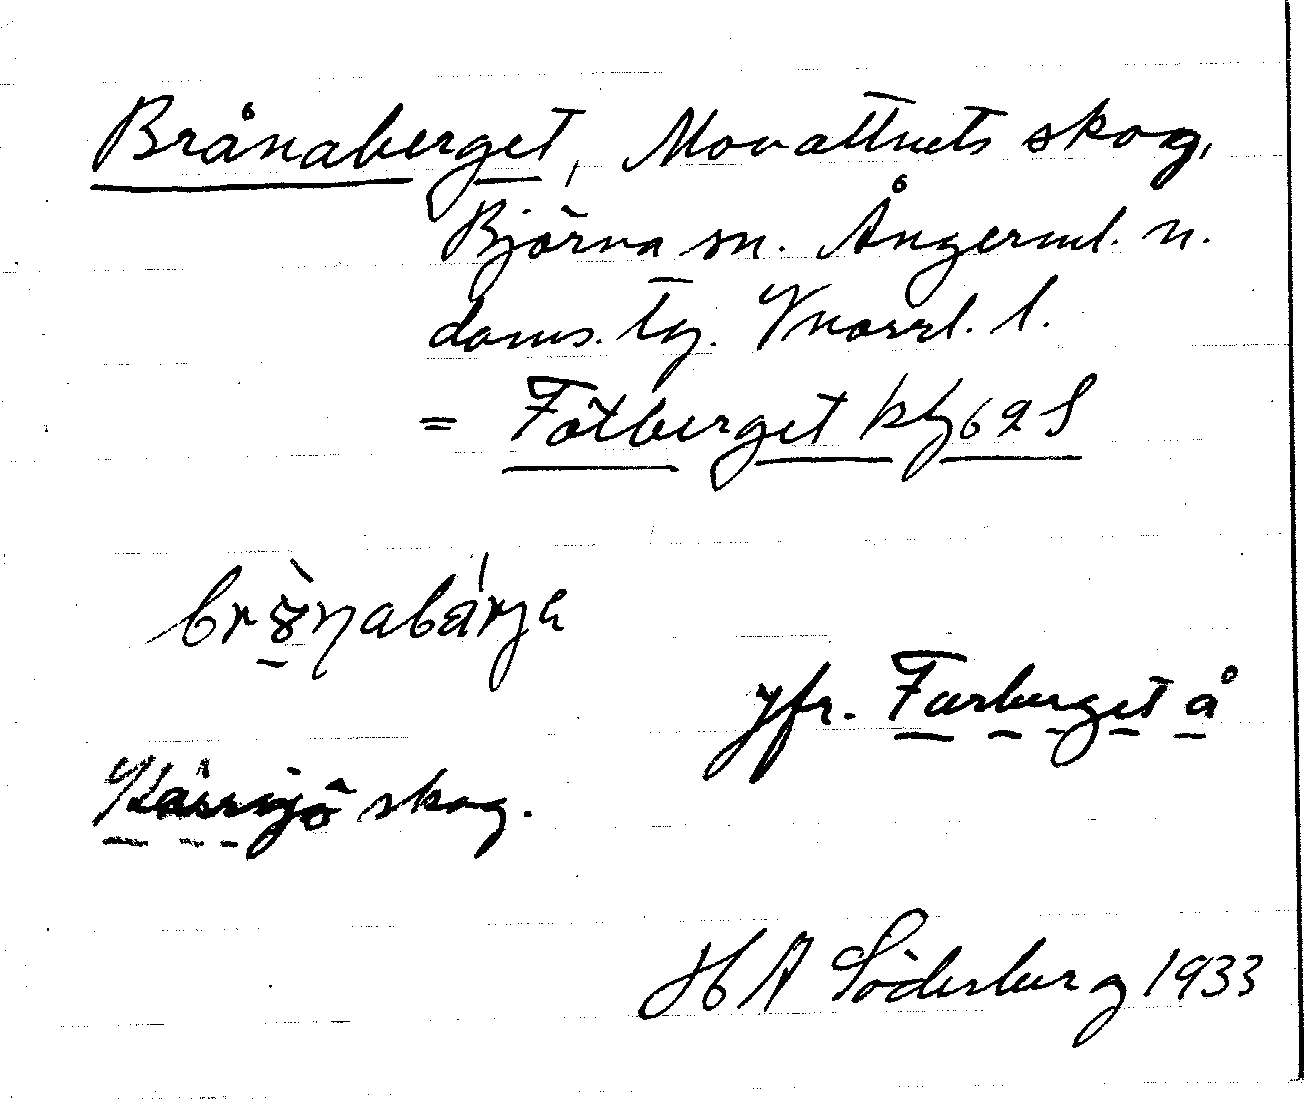 Brånaberget, Movattnets skog,
Björna sn. Ångerml. n.
doms. tg. Vnorrl. l.
= Fötberget kbl 62 S
brǫ̀nabärja
jfr. Furberget å
Kärrsjö skog.
H A Söderberg 1933